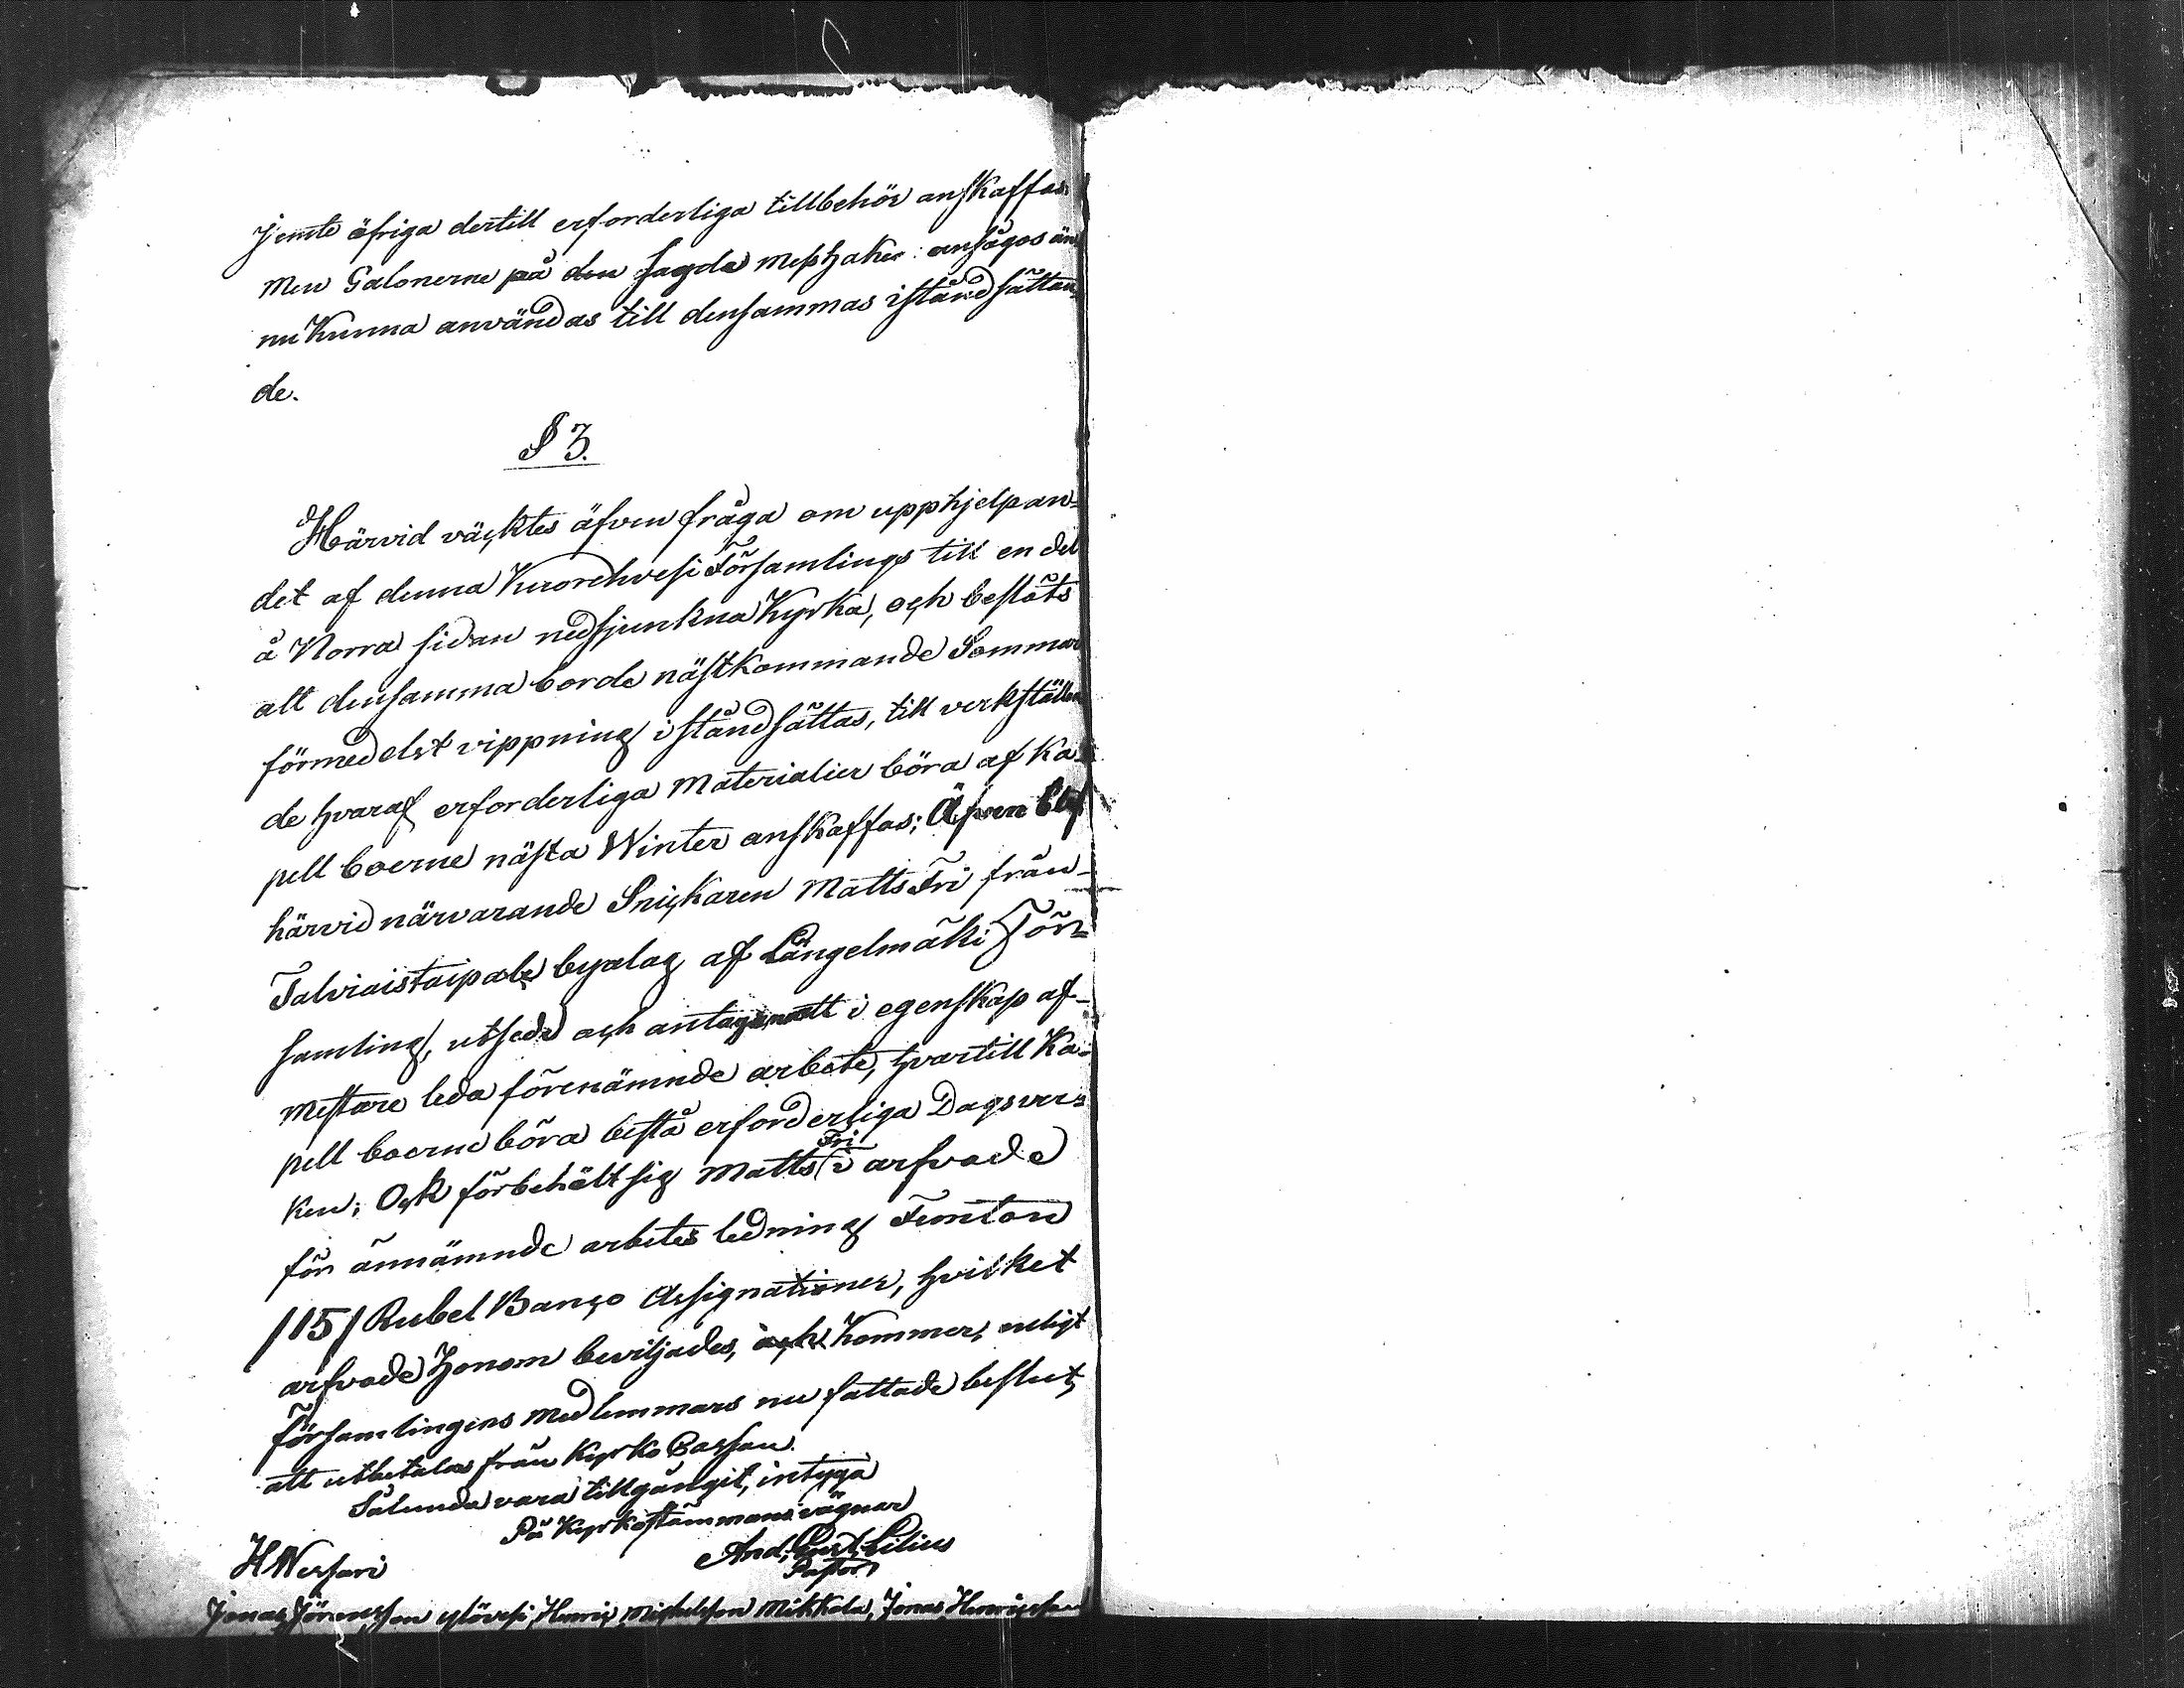 jemte öfriga dertill erforderliga tillbehör anskaffas,
men Galonerne på den sagda messhaken ansågos än
nu kunna användas till densammas iståndsättan¬
de.
§ 3.
Härvid väcktes äfven fråga om upphjelpan¬
det af denna Kuorehvesi Församlings till en del
å Norra sidan nedsjunkna Kyrka, och beslöts
att densamma borde nästkommande Sommar
förmedelst vippning iståndsättas, till verkställan
de hvaraf erforderliga Materialier böra af Ka¬
pell boerne nästa Winter anskaffas; Äfven blef
härvid närvarande Snickaren Matts Fri från
Talviaistaipale byalag af Längelmäki För¬
samling, utsedd och antagen att i egenskap af
mestare leda förenämnde arbete, hvartill Ka¬
pell boerne böra bestå erforderliga Dagsver¬
ken; Ock förbehölt sig Matts Fri i arfvode
för ännämnde arbetes ledning Femton
/15/ Rubel Banco Assignationer, hvilket
arfvode honom beviljades, och kommer, enligt
församlingens medlemmars nu fattade beslut,
att utbetalas från Kyrko Cassan.
Sålunda vara tillgångit, intyga
På Kyrkostämmans vägnar
And. Gust. Lilius
Pastor
H Wessari
Jonas Jöransson Ylövesi, Henric Michelsson Mikkola, Jonas Henricsson